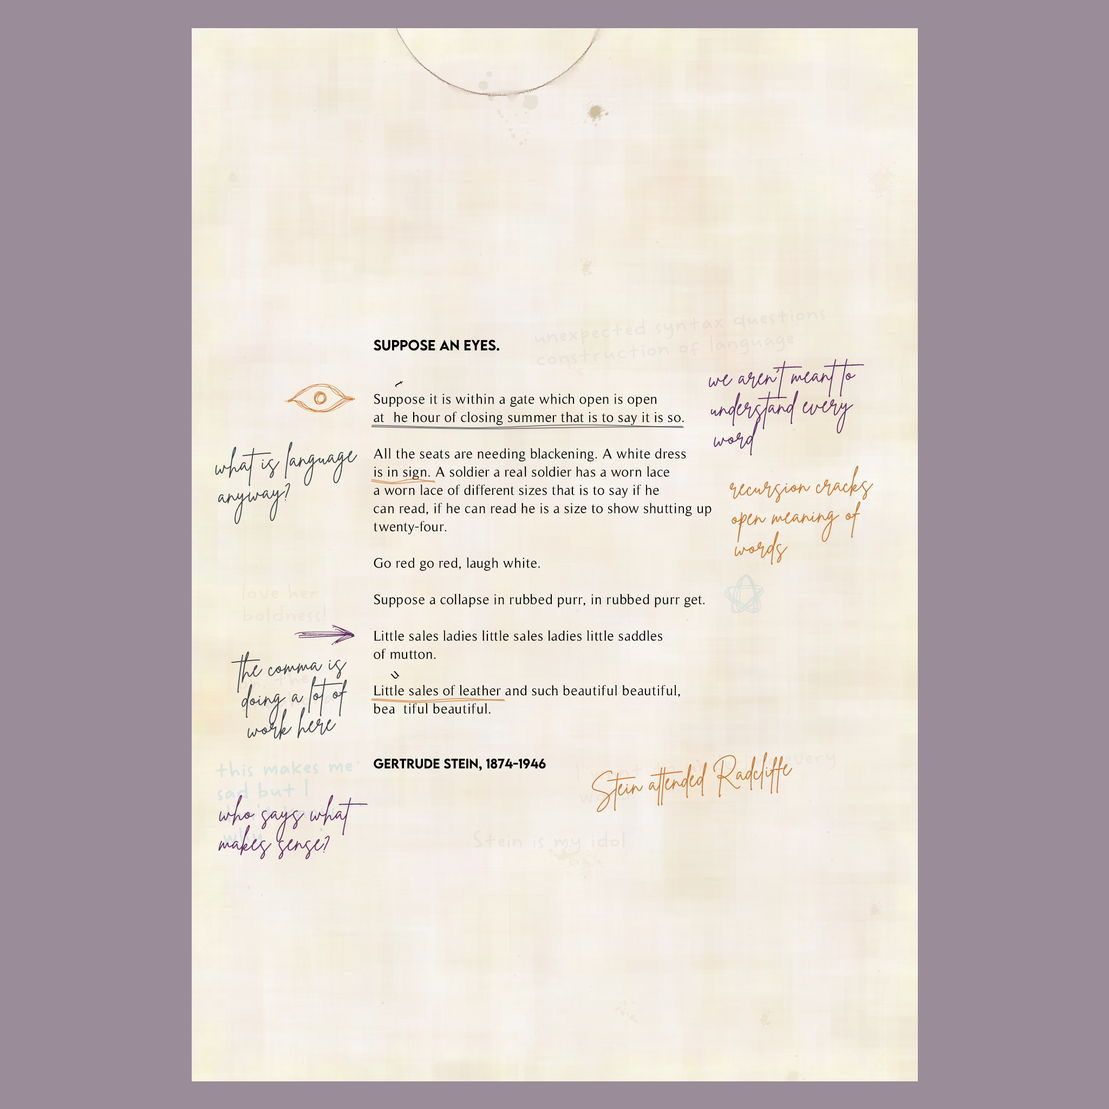 unexpected syntax questions
construction of language
SUPPOSE AN EYES.
we aren't meant to
understand every
word
Suppose it is within a gate which open is open
at he hour of closing summer that is to say it is so.
what is language
anyway?
All the seats are needing blackening. A white dress
is in sign. A soldier a real soldier has a worn lace
a worn lace of different sizes that is to say if he
can read, if he can read he is a size to show shutting up
twenty-four.
recursion cracks
open meaning of
words
Go red go red, laugh white.
love her
boldness!
Suppose a collapse in rubbed purr, in rubbed purr get.
Little sales ladies little sales ladies little saddles
of mutton.
the comma is
doing a lot of
work here
u
Little sales of leather and such beautiful beautiful,
bea tiful beautiful.
GERTRUDE STEIN, 1874-1946
this makes me
sad but I
every
Stein attended Radcliffe
who says what
makes sense?
Stein is my idol